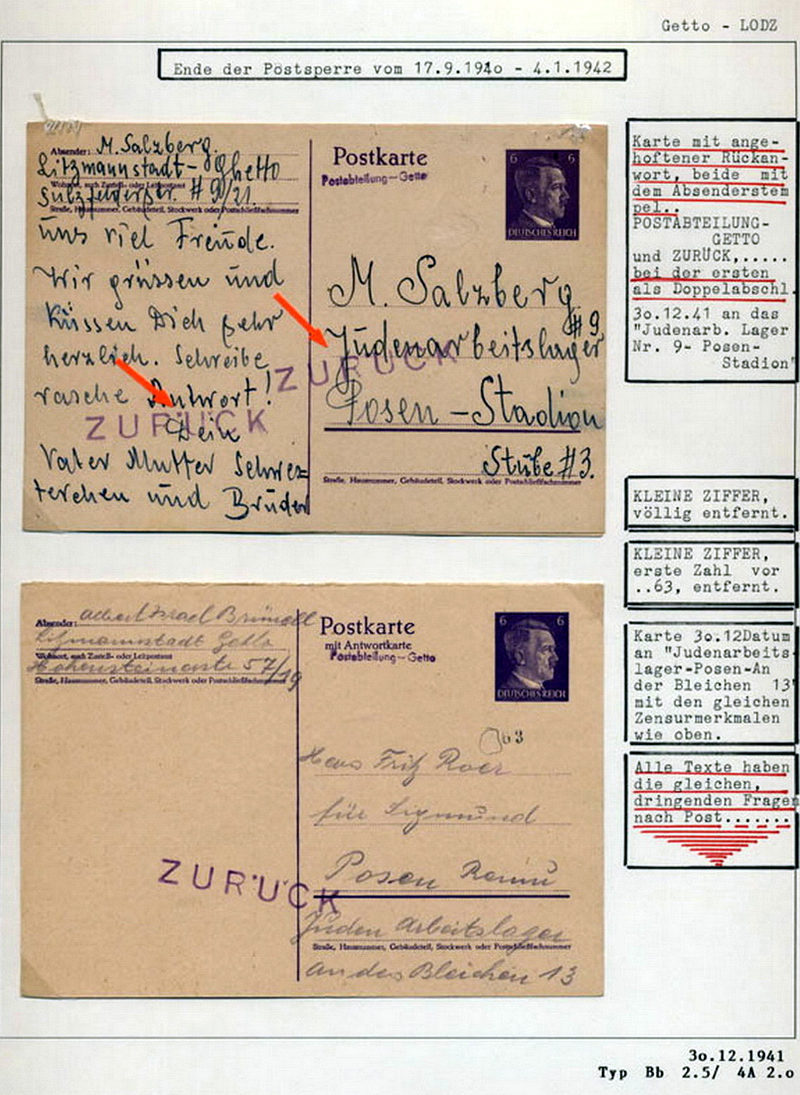 Getto - LODZ
Ende der Postsperre vom 17.9.194o - 4.1.1942
Absender: M. Salzberg.
Litzmannstadt-Ghetto
Wohnort, auch Zustell- oder Leitpostamt
Sulzfelderstr. #90/21.
Straße, Hausnummer, Gebäudeteil, Stockwerk oder Postschließfachnummer
uns viel Freude.
Wir grüssen und
küssen Dich sehr
herzlich. Schreibe
rasche Antwort!
ZURÜCK
Dein
Vater Mutter Schwes=
terchen und Brüder
Postkarte
Postabteilung-Getto
6 6
DEUTSCHES REICH
M. Salzberg
#9
Judenarbeitslager
ZURÜCK
Posen-Stadion
Stube #3.
Straße, Hausnummer, Gebäudeteil, Stockwerk oder Postschließfachnummer
Karte mit ange-
hoftener Rückan-
wort, beide mit
dem Absenderstem
pel..
POSTABTEILUNG-
GETTO
und ZURÜCK,.....
bei der ersten
als Doppelabschl.
3o.12.41 an das
"Judenarb. Lager
Nr. 9- Posen-
Stadion"
KLEINE ZIFFER,
völlig entfernt.
KLEINE ZIFFER,
erste Zahl vor
..63, entfernt.
Karte 3o.12Datum
an "Judenarbeits-
lager-Posen-An
der Bleichen 13"
mit den gleichen
Zensurmerkmalen
wie oben.
Alle Texte haben
die gleichen,
dringenden Fragen
nach Post.......
Absender: Albert Israel
Litzmannstadt Getto
Wohnort, auch Zustell- oder Leitpostamt
Hohensteinerstr 57/19
Straße, Hausnummer, Gebäudeteil, Stockwerk oder Postschließfachnummer
Postkarte
mit Antwortkarte
Postabteilung-Getto
6 6
DEUTSCHES REICH
63
Hans Fritz Roer
für Sigmund
Posen
ZURÜCK
Juden Arbeitslager
Straße, Hausnummer, Gebäudeteil, Stockwerk oder Postschließfachnummer
An des Bleichen 13
3o.12.1941
Typ Bb 2.5/ 4A 2.o